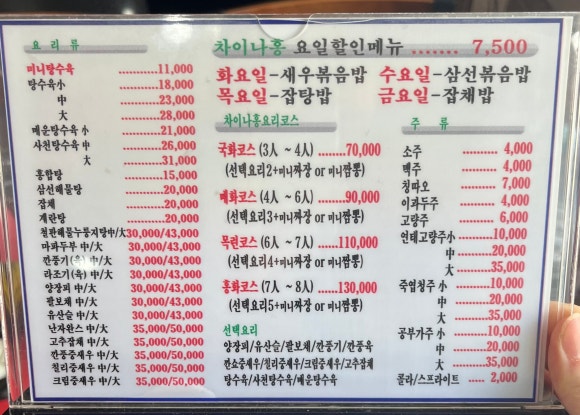 요 리 류
미니탕수육 ............11,000
탕수육小 ............18,000
中 ............23,000
大 ............28,000
매운탕수육 小 ............21,000
사천탕수육 中 ............26,000
大 ............31,000
홍합탕 ............15,000
삼선해물탕 ............20,000
잡채 ............20,000
계란탕 ............20,000
철판해물누룽지탕中/大30,000/43,000
마파두부 中/大 30,000/43,000
깐풍기(육) 中/大 30,000/43,000
라조기(육) 中/大 30,000/43,000
양장피 中/大 30,000/43,000
팔보채 中/大 30,000/43,000
유산슬 中/大 30,000/43,000
난자완스 中/大 35,000/50,000
고추잡채 中/大 35,000/50,000
깐풍중새우 中/大 35,000/50,000
칠리중새우 中/大 35,000/50,000
크림중새우 中/大 35,000/50,000
차이나홍 요일할인메뉴 ....... 7,500
화요일-새우볶음밥 수요일-삼선볶음밥
목요일-잡탕밥 금요일-잡채밥
차이나홍요리코스
국화코스 (3人 ~ 4人) .........70,000
(선택요리2+미니짜장 or 미니짬뽕)
매화코스 (4人 ~ 6人) .........90,000
(선택요리3+미니짜장 or 미니짬뽕)
목련코스 (6人 ~ 7人) ......110,000
(선택요리4+미니짜장 or 미니짬뽕)
홍화코스 (7人 ~ 8人) ......130,000
(선택요리5+미니짜장 or 미니짬뽕)
선택요리
양장피/유산슬/팔보채/깐풍기/깐풍육
깐쇼중새우/칠리중새우/크림중새우/고추잡채
탕수육/사천탕수육/매운탕수육
주 류
소주 ............ 4,000
맥주 ............ 4,000
칭따오 ............ 7,000
이과두주 ............ 4,000
고량주 ............ 6,000
연태고량주小 ............10,000
中 ............20,000
大 ............35,000
죽엽청주 小 ............10,000
中 ............20,000
大 ............35,000
공부가주 小 ............10,000
中 ............20,000
大 ............35,000
콜라/스프라이트 ..... 2,000